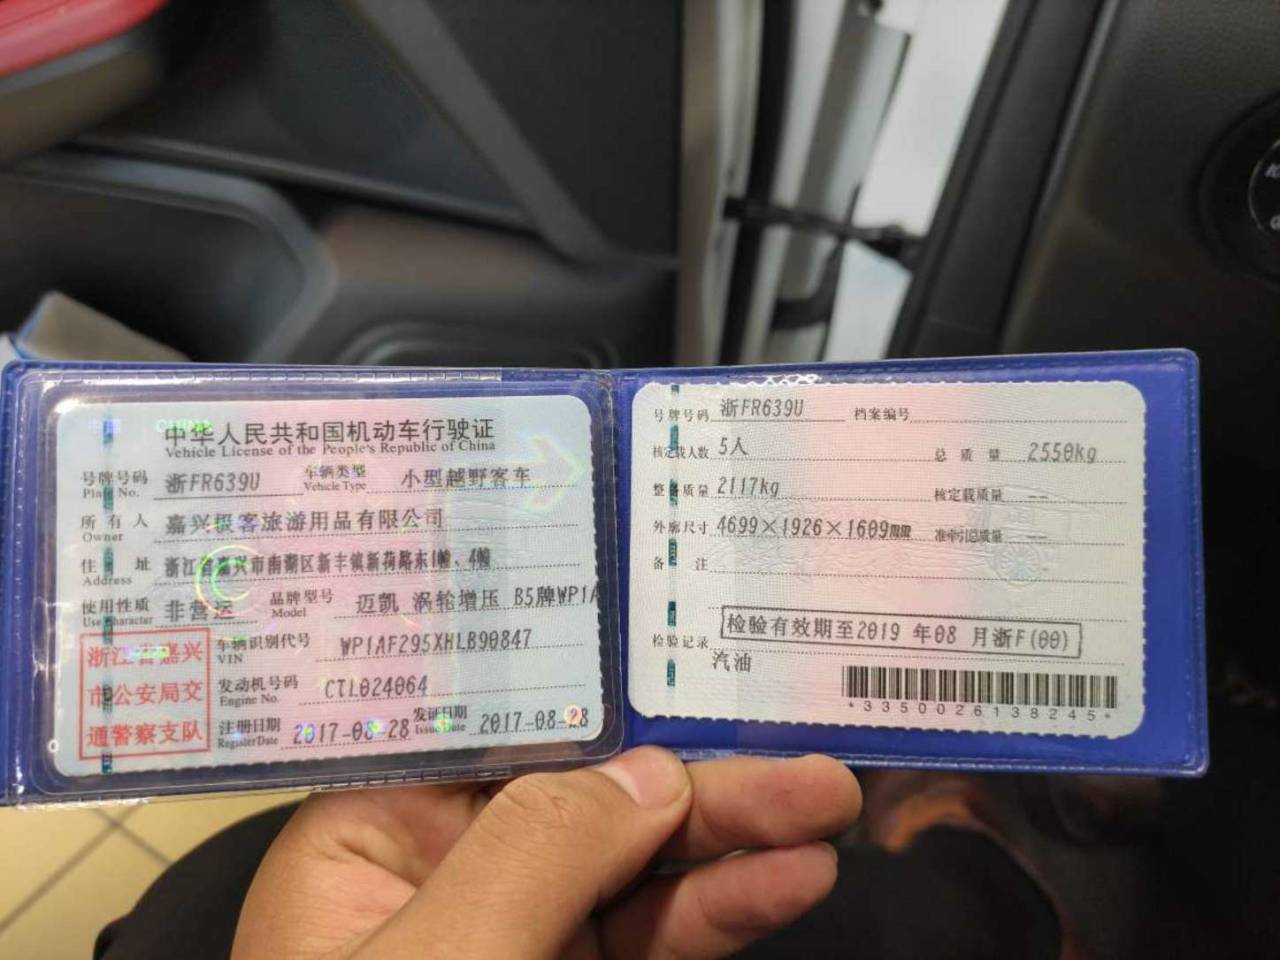 中华人民共和国机动车行驶证
Vehicle License of the People's Republic of China
号牌号码 浙FR639U 车辆类型 小型越野客车
Plate No. Vehicle Type
所有人 嘉兴极客旅游用品有限公司
Owner
住址 浙江省嘉兴市南湖区新丰镇新荷路东1幢、4幢
Address
使用性质 非营运 品牌型号 迈凯 涡轮增压 B5牌WP1A
Use Character Model
浙江省嘉兴
市公安局交
通警察支队
车辆识别代号 WP1AF295XHLB90847
VIN
发动机号码 CTL024064
Engine No.
注册日期 2017-08-28 发证日期 2017-08-28
Register Date Issue Date
号牌号码 浙FR639U 档案编号
核定载人数 5人 总质量 2550kg
整备质量 2117kg 核定载质量 --
外廓尺寸 4699×1926×1609mm 准牵引总质量 --
备注
检验记录 检验有效期至2019 年08 月浙F(00)
汽油
*3350026138245*